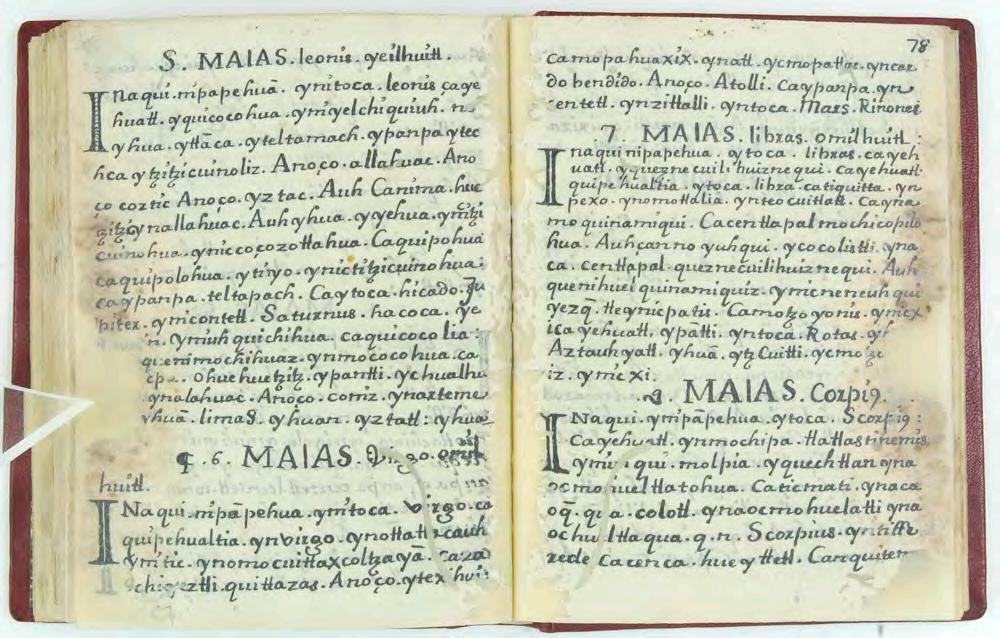 S. MAIAS. leonis. yeilhuitl.
Inaqui. nipapehuā. ynitoca. leonis ca ye
huatl. yquicocohua. ymiyelchiquiuh. n
yhua. ytlāca. yteltamach. ypanpa ytec
hca ytzitzicuinoliz. Anoço. allahuac. Ano
ço coztic Anoço. yztac. Auh Canima. huc
ynallahuac. Auh yhua. yyehua.
cuinohua. yniccoçozotlahua. Caquipohua
caquipolohua. ytiyo. ynictitzicuinohua:
caypanpa. teltapach. Caytoca. hicado. Ju
piter. ynicontetl. Saturnus. hacoca. ye
n. yniuh quichihua. caquicocolia:
quenimochihuaz. ynmococohua. ca
ohuehuetzitz. ypantli. ychualhu
ynalahuac. Anoço. comiz. ynaxteme
yhuā. limas. yhuan. yztatl: yhua
¶. 6. MAIAS. Virgo. omil
huitl.
INaqui. nipapehua. ynitoca. virgo. ca
quipehualtia. ynvirgo. ynotlatl
ynitic. ynomocuitlaxcoltzayā.
quitlazas. Anoço. ytex
78
camopahuaxix. ynatl. ycmopatlas. yncar
do bendido. Anoço. Atolli. Caypanpa. yn
centetl. ynzitlalli. yntoca. Mars. Rinonei
7. MAIAS. libras. omilhuitl
Inaqui nipapehua. ytoca. libras. cayeh
uatl. yquezne cuilihuiznequi. cayehuatl.
quipehualtia. ytoca. libra. catiquitta. yn
pexo. ynomotlalia. ynteocuitlatl. Cayna
moquinamiqui. Cacentlapalmochicopilo
hua. Auhçanno yuhqui. ycocolistli. yna
ca. centlapal. queznecuilihuiznequi. Auh
quenihuel quinamiquiz. ynicneneuhqui
yezq̄. tleynicpatis. Camotzoyonis. ynicx
icayehuatl. ypātli. yntoca. Rotas. yh
Aztauhyatl. yhuā. ytzCuitli. ycmo
iz. ynicxi.
8. MAIAS. Corpio.
INaqui. ynipāpehua. ytoca. Scorpio:
Cayehuatl. ynmochipa. tlatlastinemis
ymi iqui. molpia. yquechtlan yna
ocmo huel tlatohua. Caticmati. ynaca
oq. qi a. colotl. ynaocmohuelatli yna
ochu ltlaqua. q. n. Scorpius.
rede Cacenca. hueytletl. Canquitem